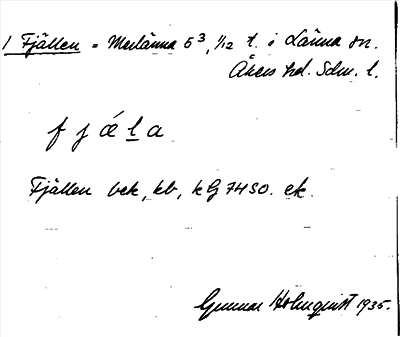 1 Fjällen = Merlänna 5³, 1/12 t. i Länna sn.
Åkers hd. Sdm. l.
f j ǽ l a
Fjällen bck, kb, kG 7450. ek.
Gunnar Holmquist 1935.